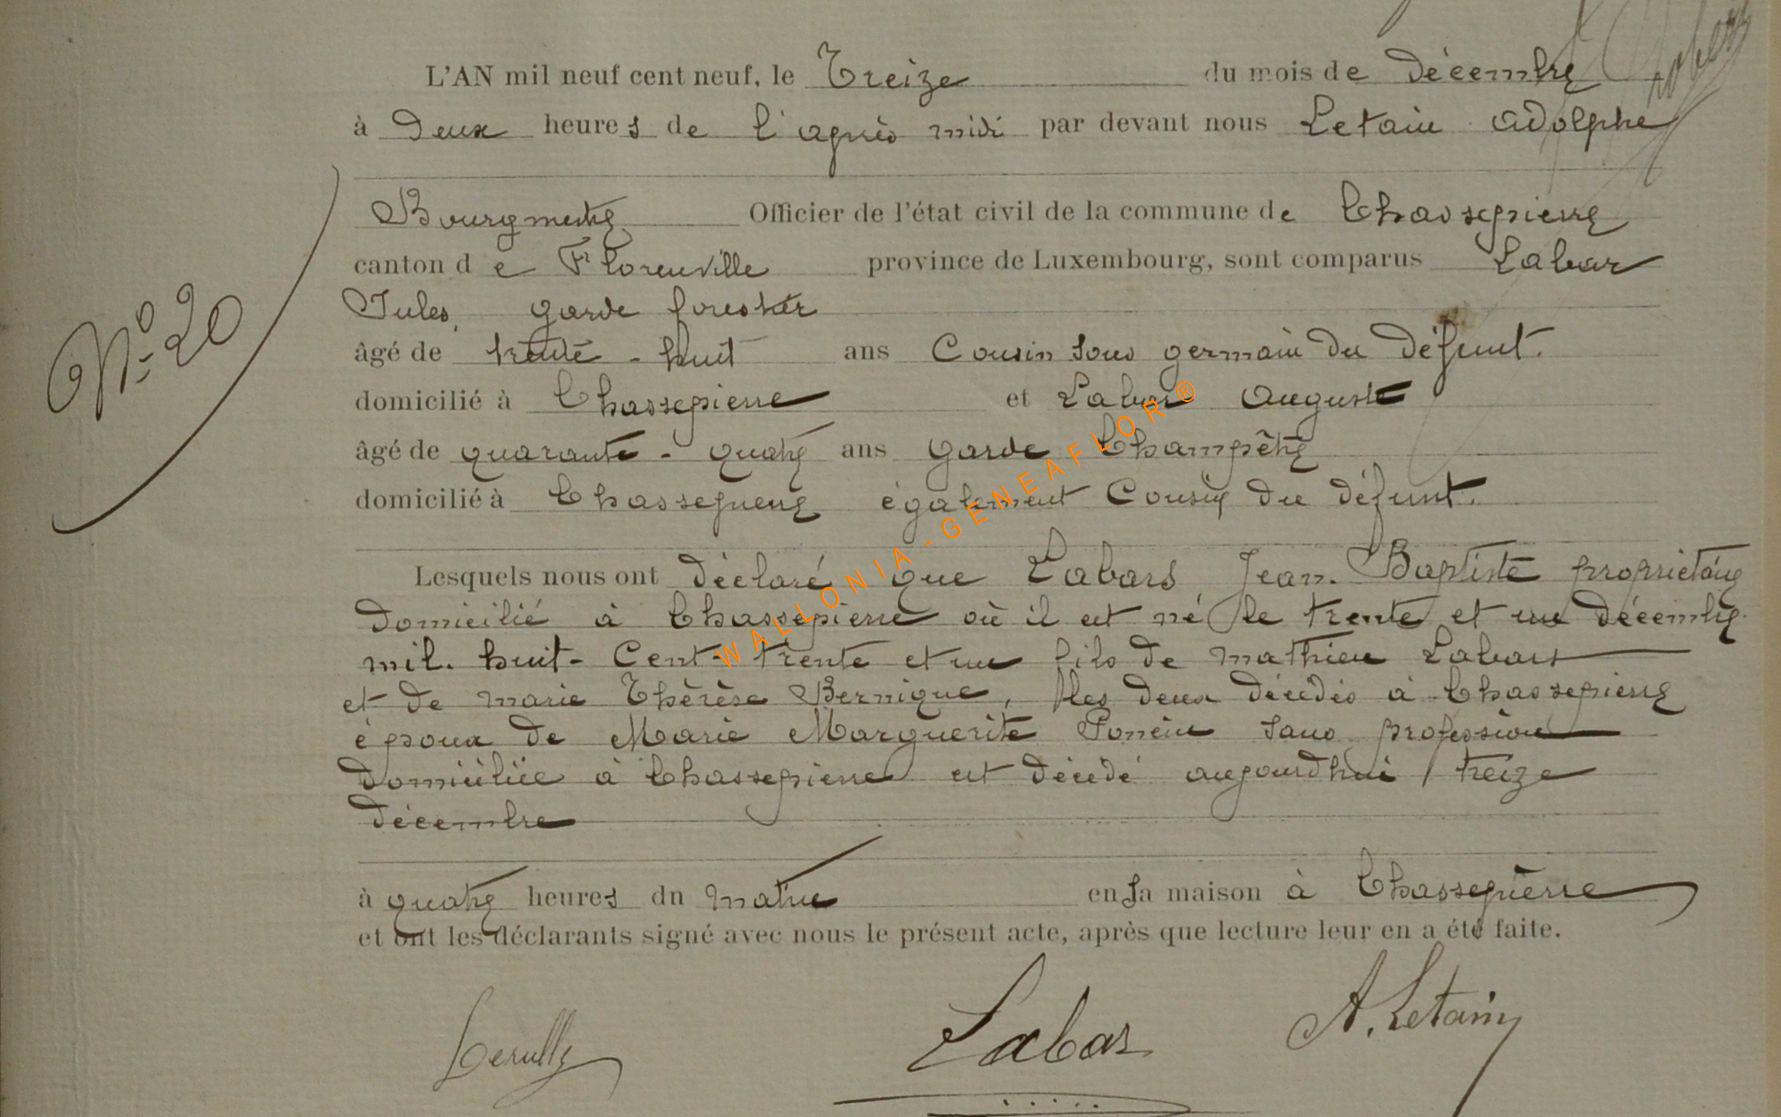 L'AN mil neuf cent neuf, le Treize du mois de décembre
à deux heures de l'après midi par devant nous Letain Adolphe
Bourgmestre Officier de l'état civil de la commune de Chassepierre
canton de Florenville province de Luxembourg, sont comparus Labar
Jules, garde forestier
âgé de trente-huit ans Cousin sous germain du défunt.
domicilié à Chassepierre et Labar Auguste
âgé de quarante-quatre ans garde Champêtre
Nº 20
domicilié à Chassepierre également Cousin du défunt.
Lesquels nous ont déclaré que Labars Jean-Baptiste propriétaire
domicilié à Chassepierre où il est né le trente et un décembre
mil-huit-Cent-trente et un fils de Mathieu Labars
et de Marie Thérèse Bernique, les deux décédés à Chassepierre
époux de Marie Marguerite Poncin sans profession
domiciliée à Chassepierre est décédé aujourdhui treize
décembre
à quatre heures du matin en sa maison à Chassepierre
et ont les déclarants signé avec nous le présent acte, après que lecture leur en a été faite.
Labar A. Letain
WALLONIA-GENEAFLOR®